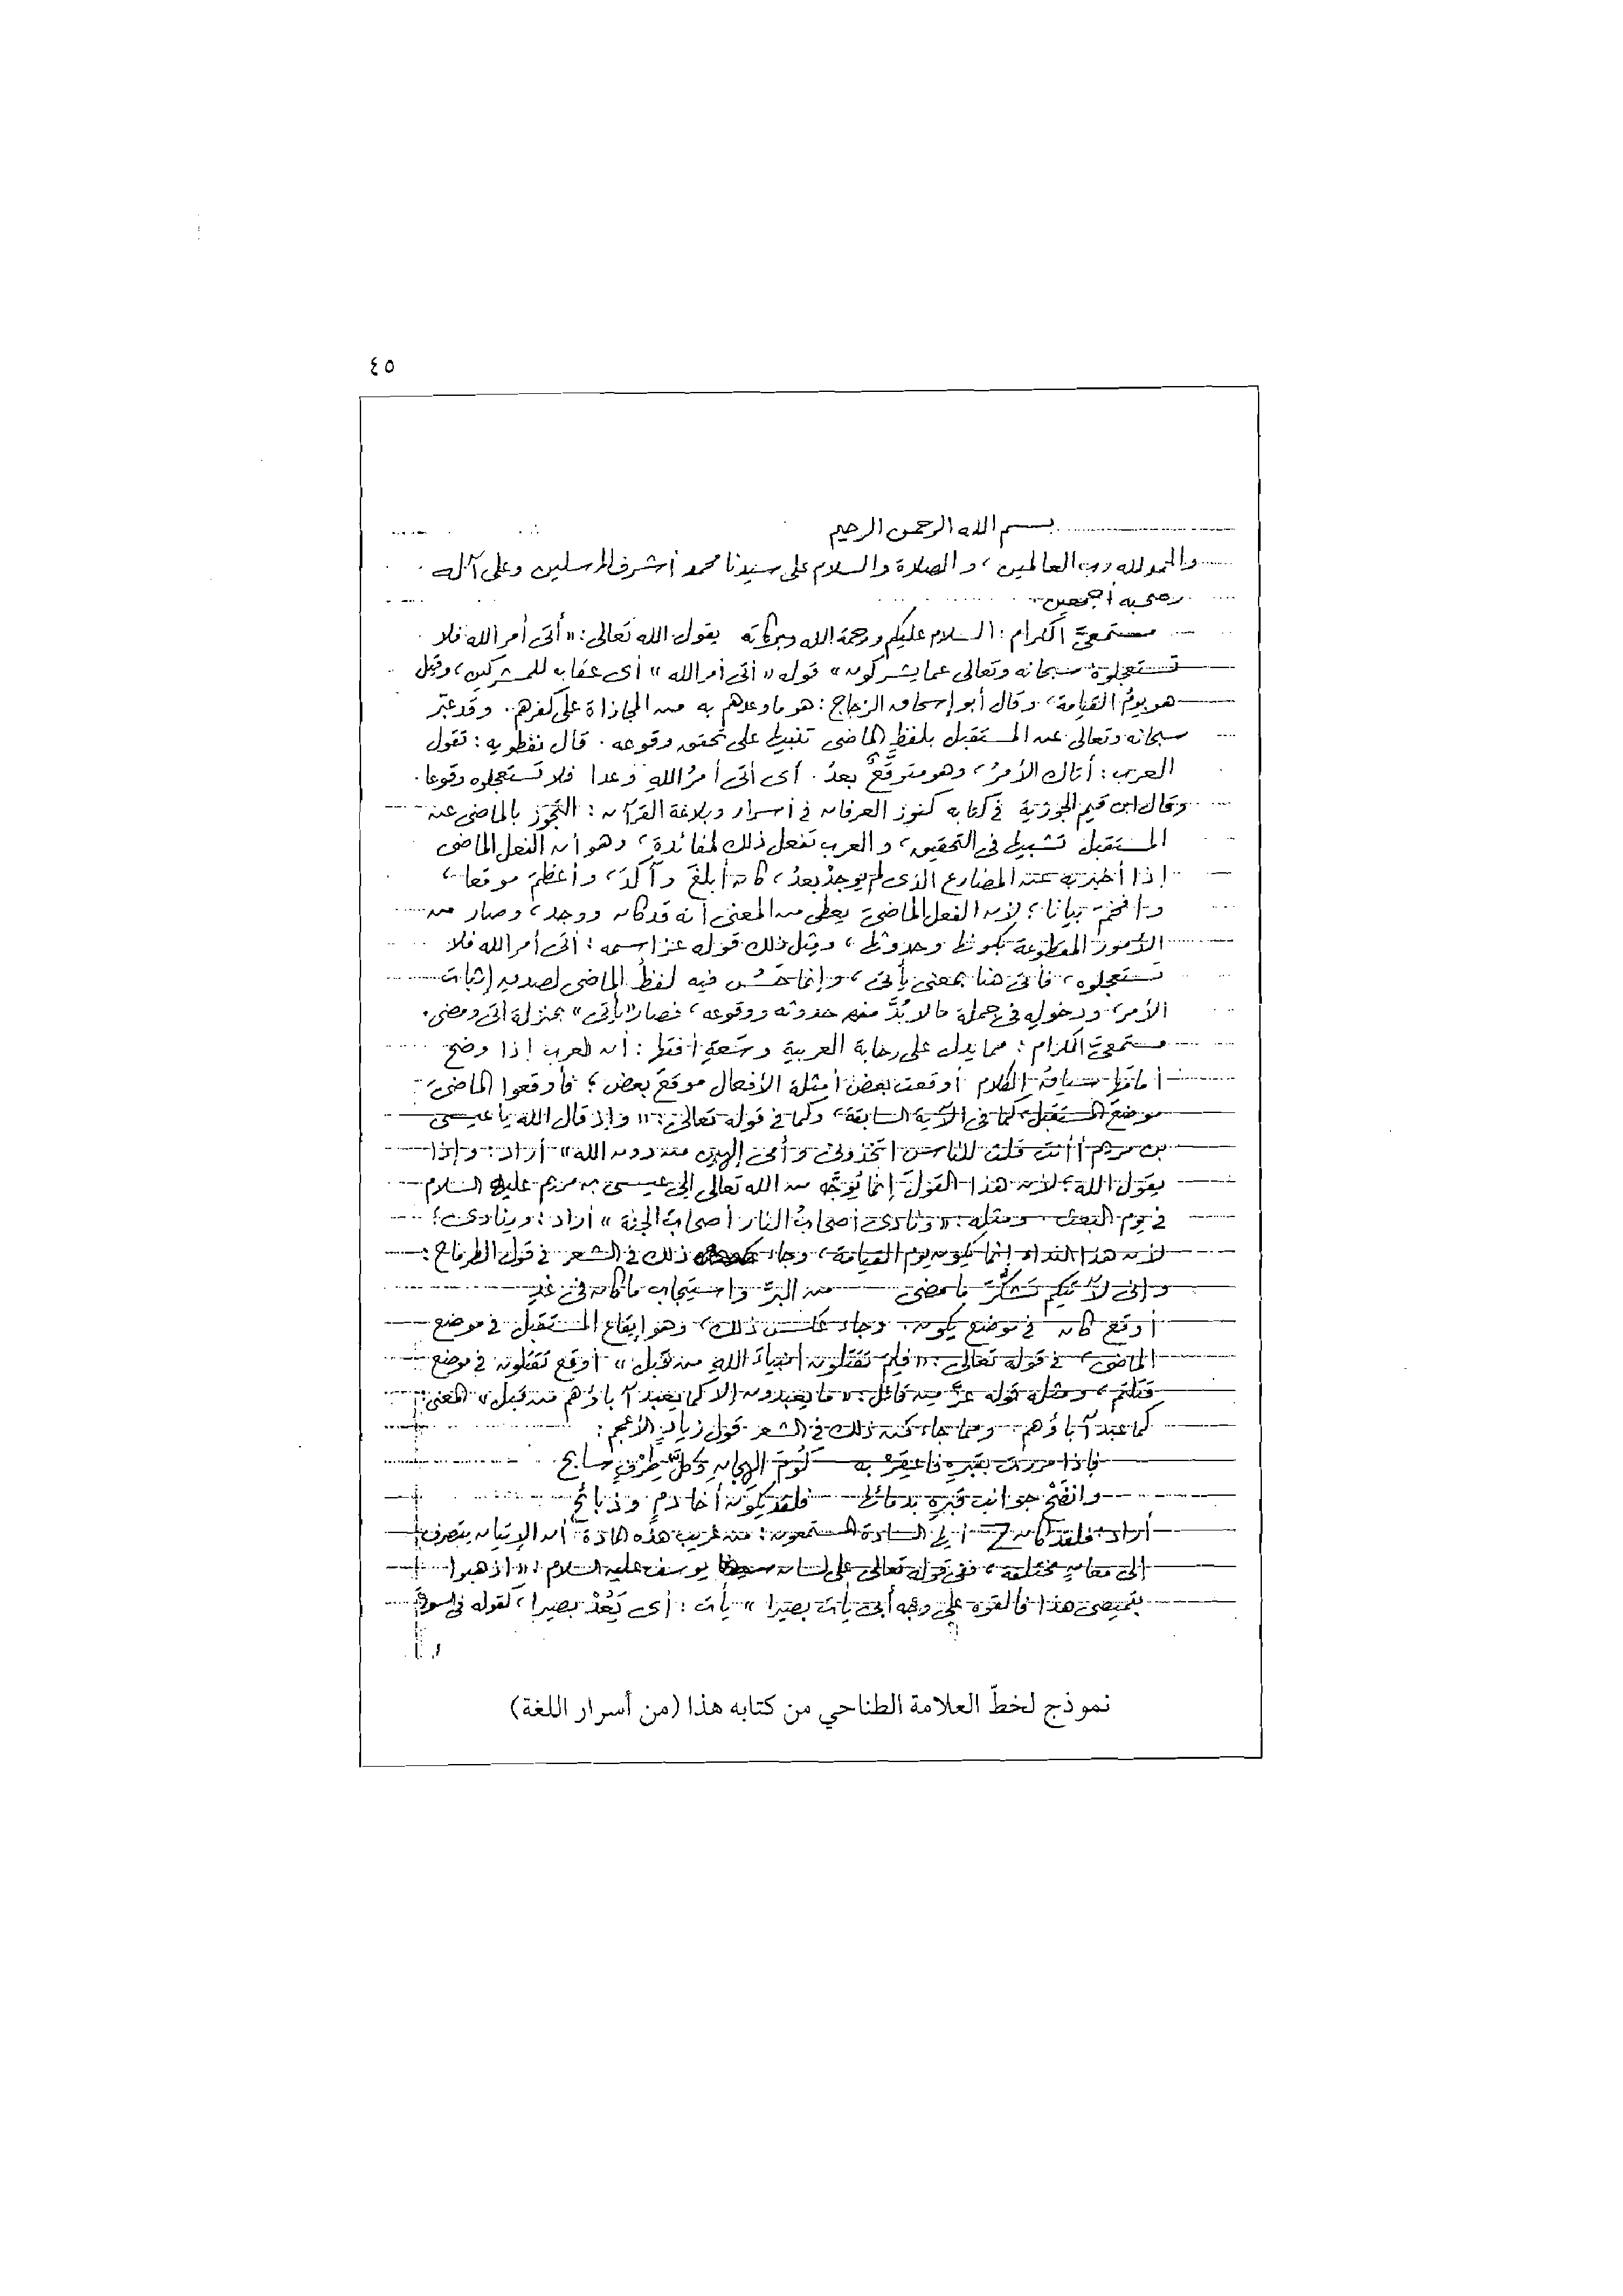 ٤٥
بسم الله الرحمن الرحيم
والحمد لله رب العالمين، والصلاة والسلام على سيدنا محمد أشرف المرسلين وعلى آله
وصحبه أجمعين
مستمعىّ الكرام: السلام عليكم ورحمة الله وبركاته يقول الله تعالى: «أتى أمر الله فلا
تستعجلوه سبحانه وتعالى عما يشركون» قوله «أتى أمر الله» أى عقابه للمشركين، وقيل
هو يومُ القيامة، وقال أبو إسحاق الزجاج: هو ما وعدهم به من المجازاة على كفرهم. وقد عبّر
سبحانه وتعالى عن المستقبل بلفظِ الماضى تنبيها على تحقق وقوعه. قال نفطويه: تقول
العرب: أتاك الأمرُ، وهو متوقَّعٌ بعدُ. أى أتى أمرُ اللهِ وعدا فلا تستعجلوه وقوعا.
وقال ابن قيم الجوزية فى كتابه كنوز العرفان فى أسرار وبلاغة القرآن: التجوّز بالماضى عن
المستقبل تشبيها فى التحقيق، والعرب تفعل ذلك لفائدةٍ، وهو أن الفعل الماضى
إذا أُخبر به عن المضارع الذى لم يوجدْ بعدُ، كان أبلغَ وآكدَ، وأعظمَ موقعا،
وأفخمَ بيانا؛ لأن الفعل الماضىَ يعطى من المعنى أنه قد كان ووجد، وصار من
الأمور المقطوعة بكونها وحدوثها، ومثل ذلك قوله عز اسمه: أتى أمر الله فلا
تستعجلوه، فأتى هنا بمعنى يأتى، وإنما حَسُن فيه لفظُ الماضى لصدق إثبات
الأمر، ودخوله فى جملة ما لابُدَّ من حدوثه ووقوعه، فصار «يأتى» بمنزلة أتى ومضى.
مستمعىّ الكرام: مما يدل على رحابة العربية وسَعةِ أفقها: أن العرب إذا وضح
أمامَها سياقُ الكلام أوقعت بعض أمثلة الأفعال موقعَ بعض؛ فأوقعوا الماضىَ
موضعَ المستقبل، كما فى الآية السابقة، وكما فى قوله تعالى: «وإذ قال الله يا عيسى
بن مريم أأنت قلت للناس اتخذونى وأمى إلهين من دون الله» أراد: وإذا
يقول الله؛ لأن هذا القولَ إنما يُوجَّه من الله تعالى إلى عيسى بن مريم عليه السلام
فى يوم البعث. ومثله: «ونادى أصحابُ النار أصحابَ الجنة» أراد: وينادى؛
لأن هذا النداء إنما يكون يوم القيامة، وجاء ذلك فى الشعر فى قول الطرماح:
وإنى لآتيكم تشكُّرَ ما مضى من البرِّ واستيجابَ ما كان فى غدِ
أوقع كان فى موضع يكون. وجاء عكس ذلك، وهو إيقاع المستقبل فى موضع
الماضى، فى قوله تعالى: «فلِمَ تقتلون أنبياءَ اللهِ من قبل» أوقع تقتلون فى موضع
قتلتم، ومثله قوله عزَّ من قائل: «ما يعبدون إلا كما يعبد آباؤهم من قبل» المعنى:
كما عبد آباؤهم. ومما جاء من ذلك فى الشعر قول زيادٍ الأعجم:
فإذا مررت بقبرِه فاعقِرْ به كُومَ الهجانِ وكلَّ طِرْفٍ سابح
وانضحْ جوانبَ قبرِه بدمائها فلقد يكون أخا دمٍ وذبائحِ
أراد: فلقد كان أيها السادة المستمعون: من غريب هذه المادة أن الإتيان يتصرف
إلى معانٍ مختلفة، ففى قوله تعالى على لسان يوسف عليه السلام: «اذهبوا
بقميصى هذا فألقوه على وجه أبى يأت بصيرا» يأت: أى يَعُدْ بصيرا، كقوله فى سورة
نموذج لخطّ العلامة الطناحي من كتابه هذا (من أسرار اللغة)